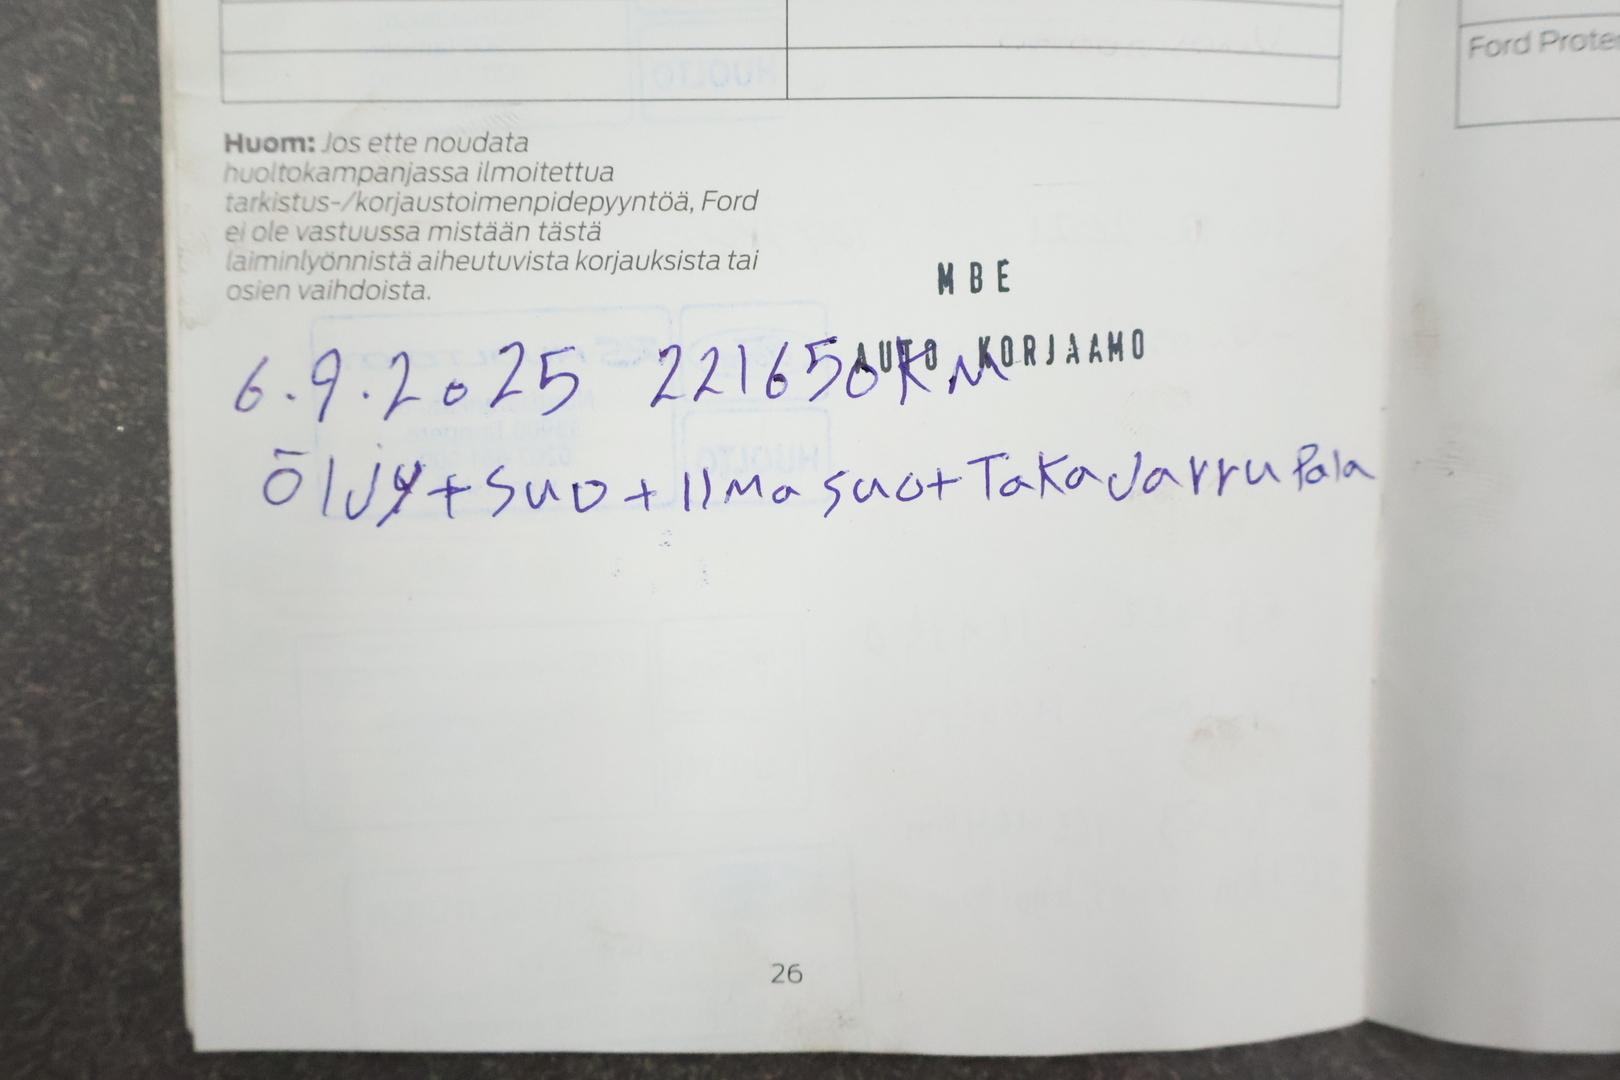 Ford Prote
Huom: Jos ette noudata
huoltokampanjassa ilmoitettua
tarkistus-/korjaustoimenpidepyyntöä, Ford
ei ole vastuussa mistään tästä
laiminlyönnistä aiheutuvista korjauksista tai
osien vaihdoista.
MBE
AUTO KORJAAMO
6.9.2025 221650KM
öljy+suo+Ilmasuo+TakaJarruPala
26